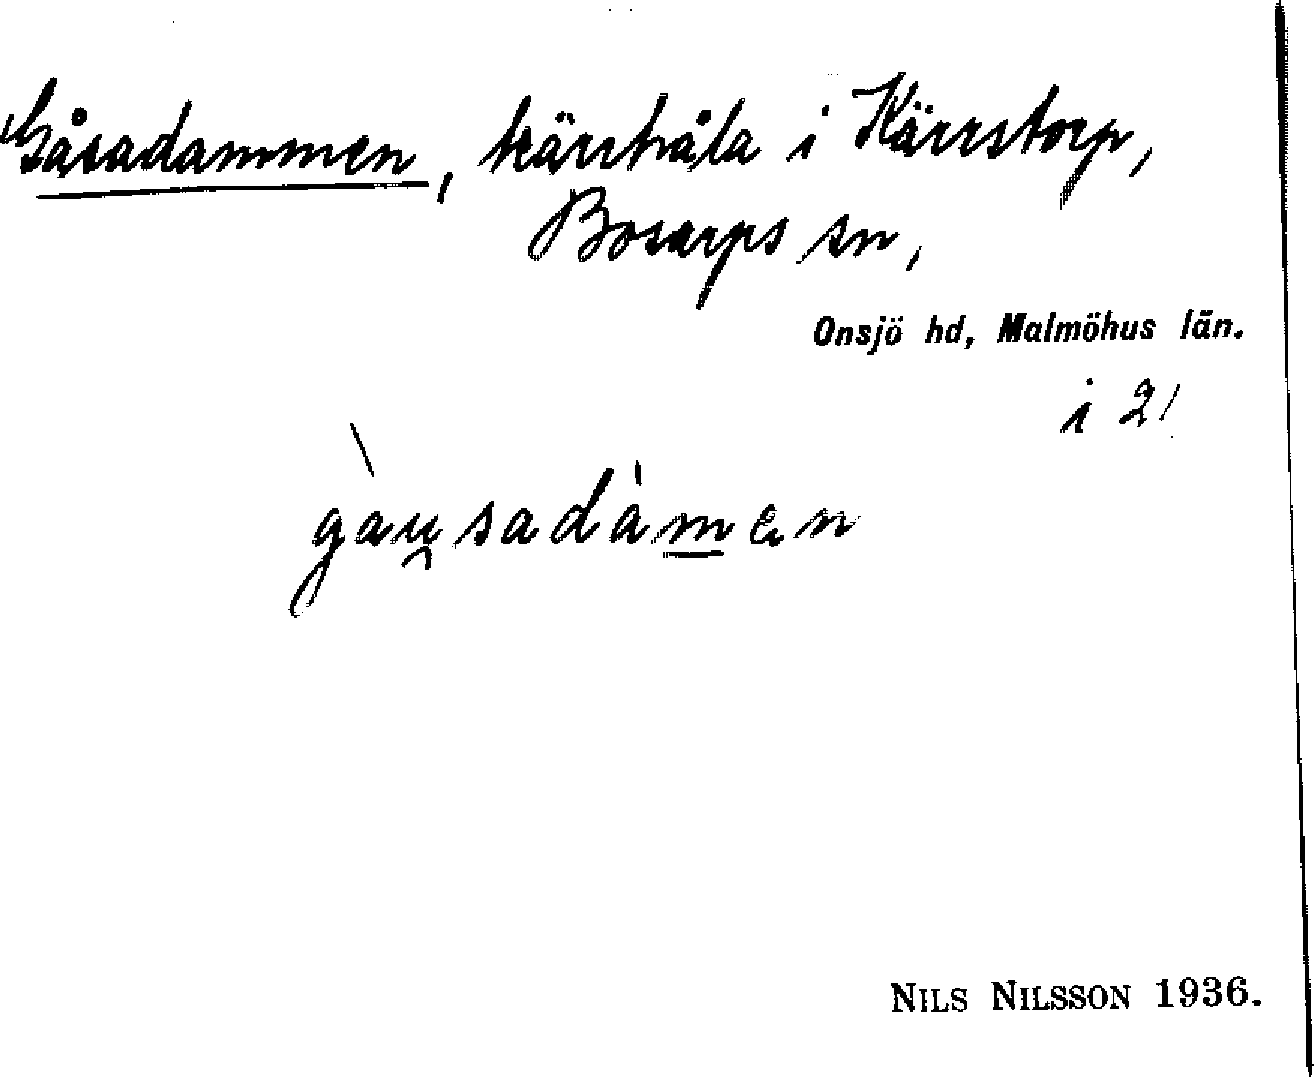 Gåsadammen, kärrhåla i Kärrstorp,
Bosarps sn,
Onsjö hd, Malmöhus län.
i 21
gàu̯sadàm̲en
NILS NILSSON 1936.